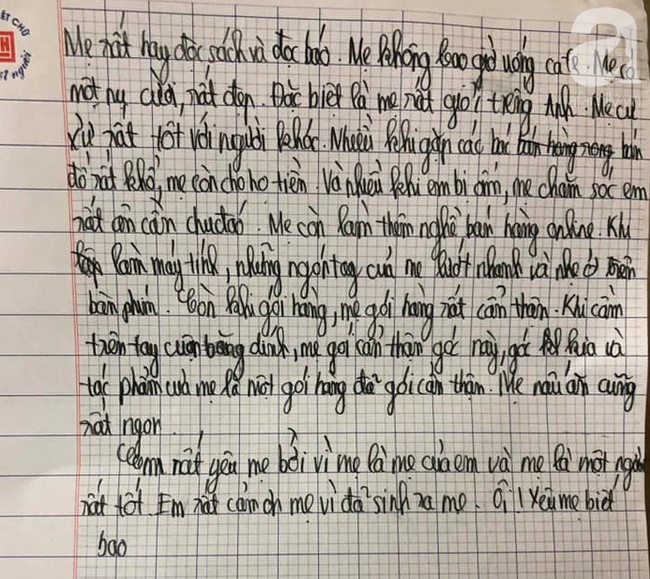 ẾT CHỮ
ết người
Mẹ rất hay đọc sách và đọc báo. Mẹ không bao giờ uống cafe. Mẹ có
một nụ cười, rất đẹp. Đặc biệt là mẹ rất giỏi tiếng Anh. Mẹ cư
xử rất tốt với người khác. Nhiều khi gặp các bác bán hàng rong bán
đồ rất khổ, mẹ còn cho họ tiền. Và nhiều khi em bị ốm, mẹ chăm sóc em
rất ân cần chu đáo. Mẹ còn làm thêm nghề bán hàng online. Khi
làm máy tính, những ngón tay của mẹ lướt nhanh và nhẹ ở trên
bàn phím. Còn khi gói hàng, mẹ gói hàng rất cẩn thận. Khi cầm
trên tay cuộn băng dính, mẹ gói cẩn thận góc này, góc kia và
tác phẩm của mẹ là một gói hàng đã gói cẩn thận. Mẹ nấu ăn cũng
rất ngon.
Em rất yêu mẹ bởi vì mẹ là mẹ của em và mẹ là một người
rất tốt. Em rất cảm ơn mẹ vì đã sinh ra mẹ. Ôi! Yêu mẹ biết
bao